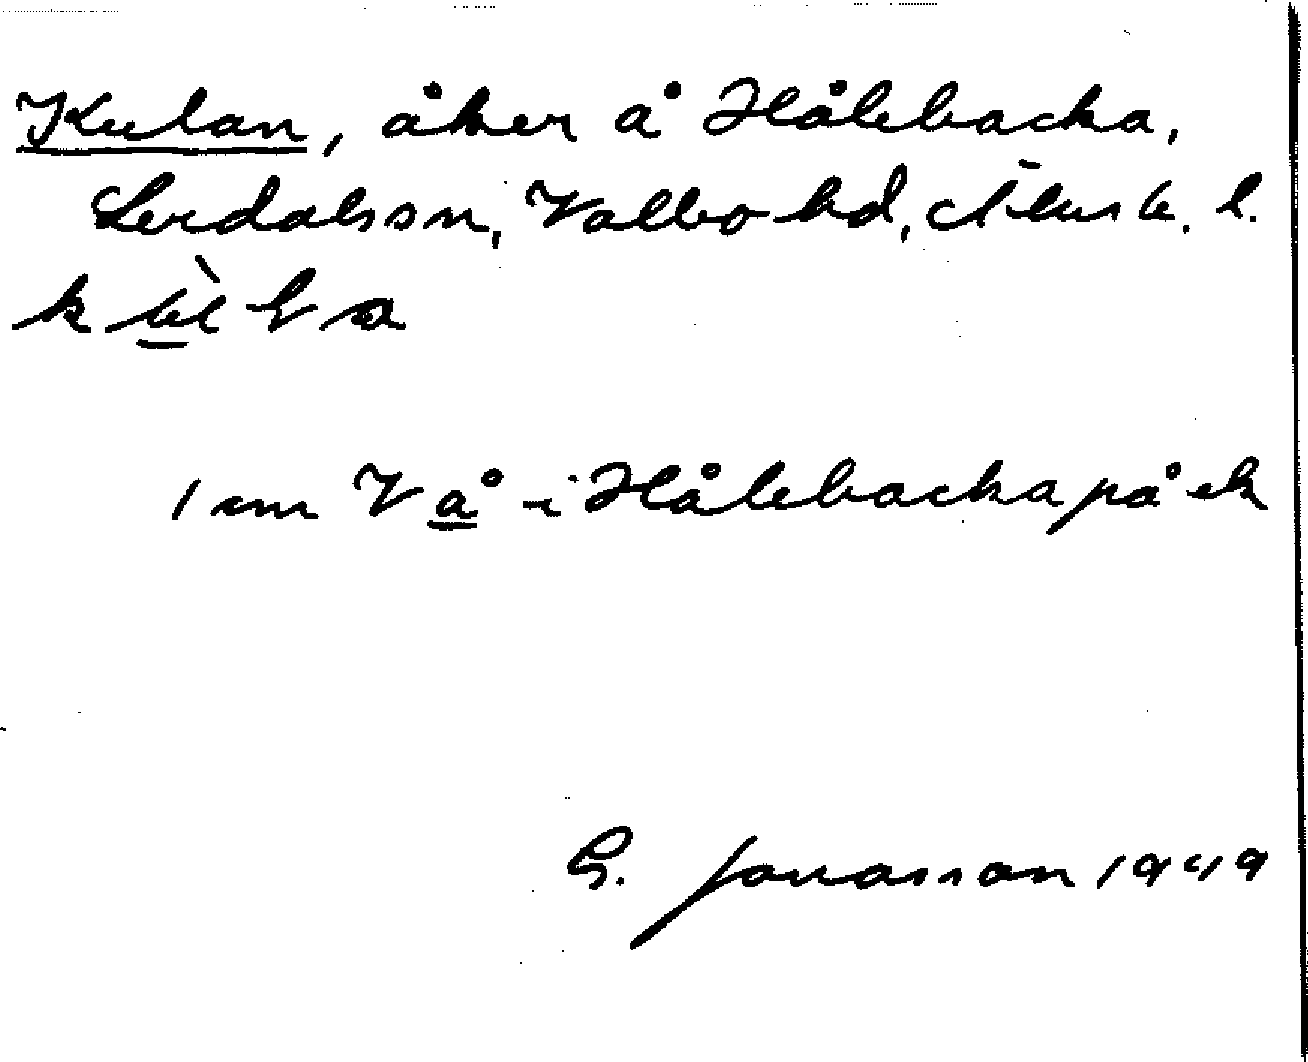 Kulan, åker å Hålebacka,
Lerdals sn, Valbo hd, Älvsb. l.
1 cm V å i Hålebacka på ek
G. Jonasson 1949